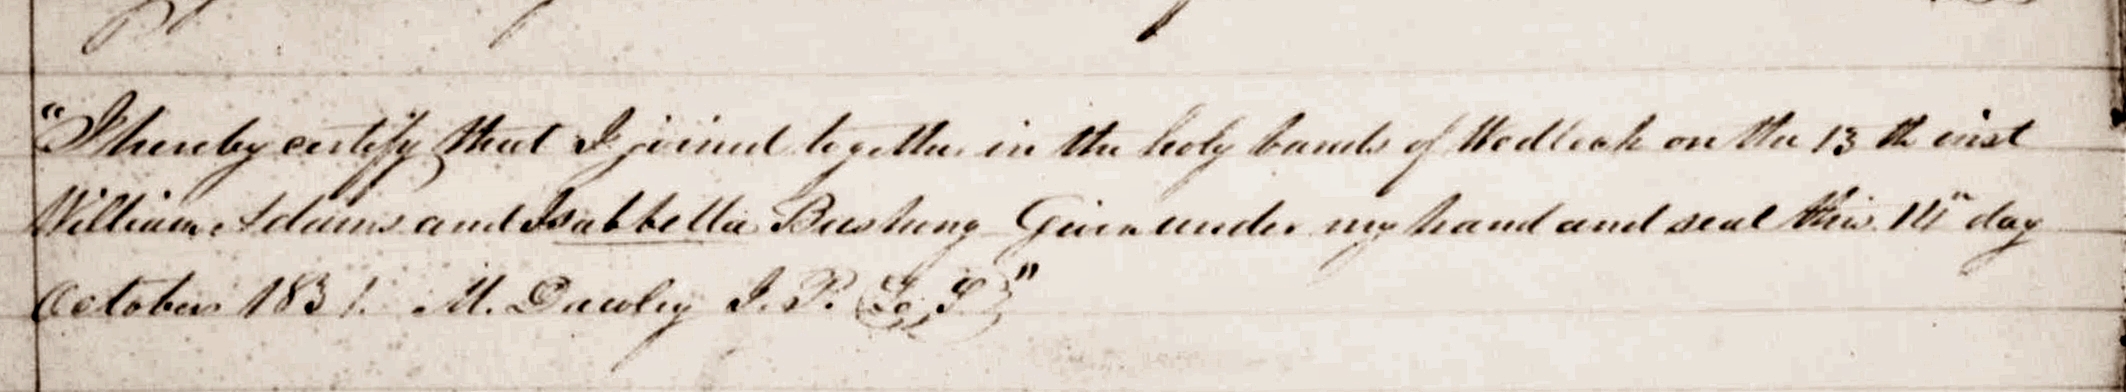 "I hereby certify that I joined together in the holy bands of Wedlock on the 13th inst
William Adams and Isabbella Bushung Given under my hand and seal this 14th day
October 1831. M. Dawley J. P. (L. S.)"